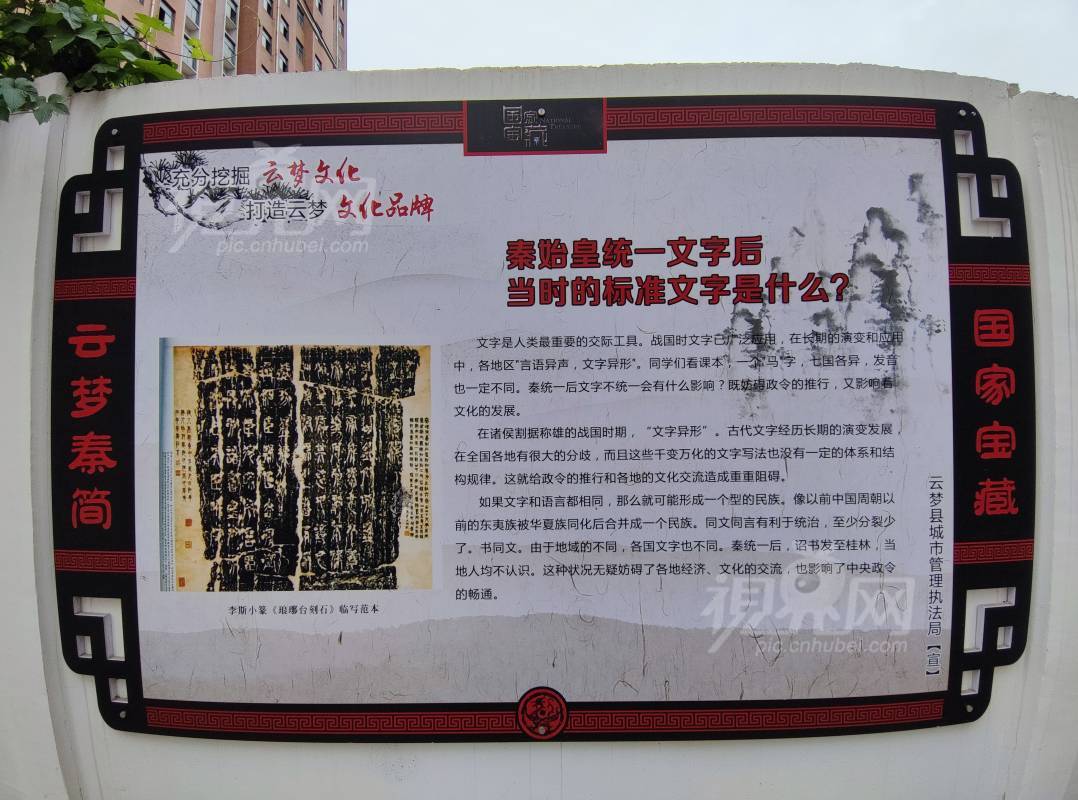 国家宝藏
NATIONAL
TREASURE
充分挖掘 云梦文化
打造云梦 文化品牌
秦始皇统一文字后
当时的标准文字是什么?
文字是人类最重要的交际工具。战国时文字已广泛应用，在长期的演变和应用
中，各地区"言语异声，文字异形"。同学们看课本，一个"马"字，七国各异，发音
也一定不同。秦统一后文字不统一会有什么影响？既妨碍政令的推行，又影响着
文化的发展。
在诸侯割据称雄的战国时期，“文字异形”。古代文字经历长期的演变发展，
在全国各地有很大的分歧，而且这些千变万化的文字写法也没有一定的体系和结
构规律。这就给政令的推行和各地的文化交流造成重重阻碍。
如果文字和语言都相同，那么就可能形成一个型的民族。像以前中国周朝以
前的东夷族被华夏族同化后合并成一个民族。同文同言有利于统治，至少分裂少
了。书同文。由于地域的不同，各国文字也不同。秦统一后，诏书发至桂林，当
地人均不认识。这种状况无疑妨碍了各地经济、文化的交流，也影响了中央政令
的畅通。
李斯小篆《琅琊台刻石》临写范本
云梦秦简
国家宝藏
云梦县城市管理执法局【宣】
視界网
pic.cnhubei.com
視界网
pic.cnhubei.com